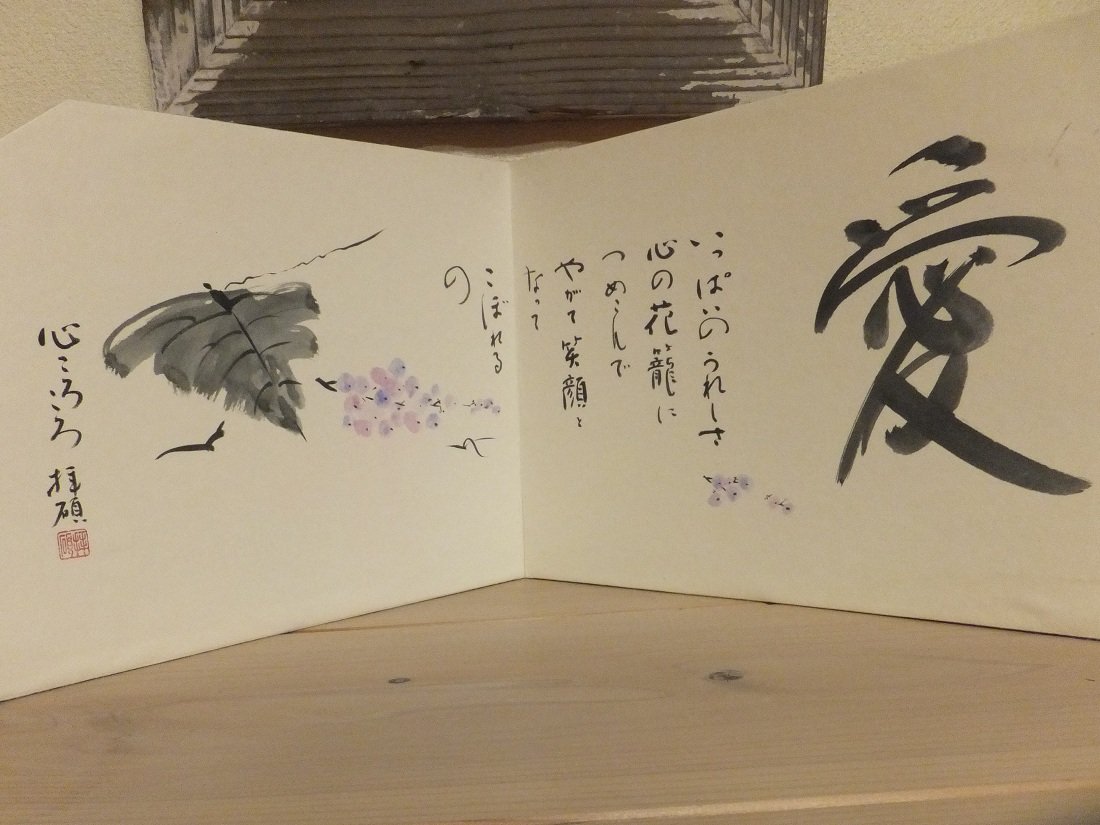 愛
いっぱいのうれしさ
心の花籠に
つめこんで
やがて笑顔と
なって
こぼれる
の
心ころろ 拝碩